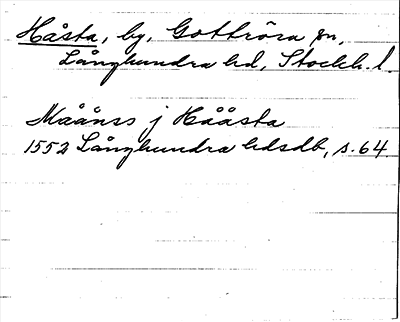 Håsta, by, Gottröra sn,
Långhundra hd, Stockh. l.
Måånss j Hååsta
1552 Långhundra hdsdb, s. 64.